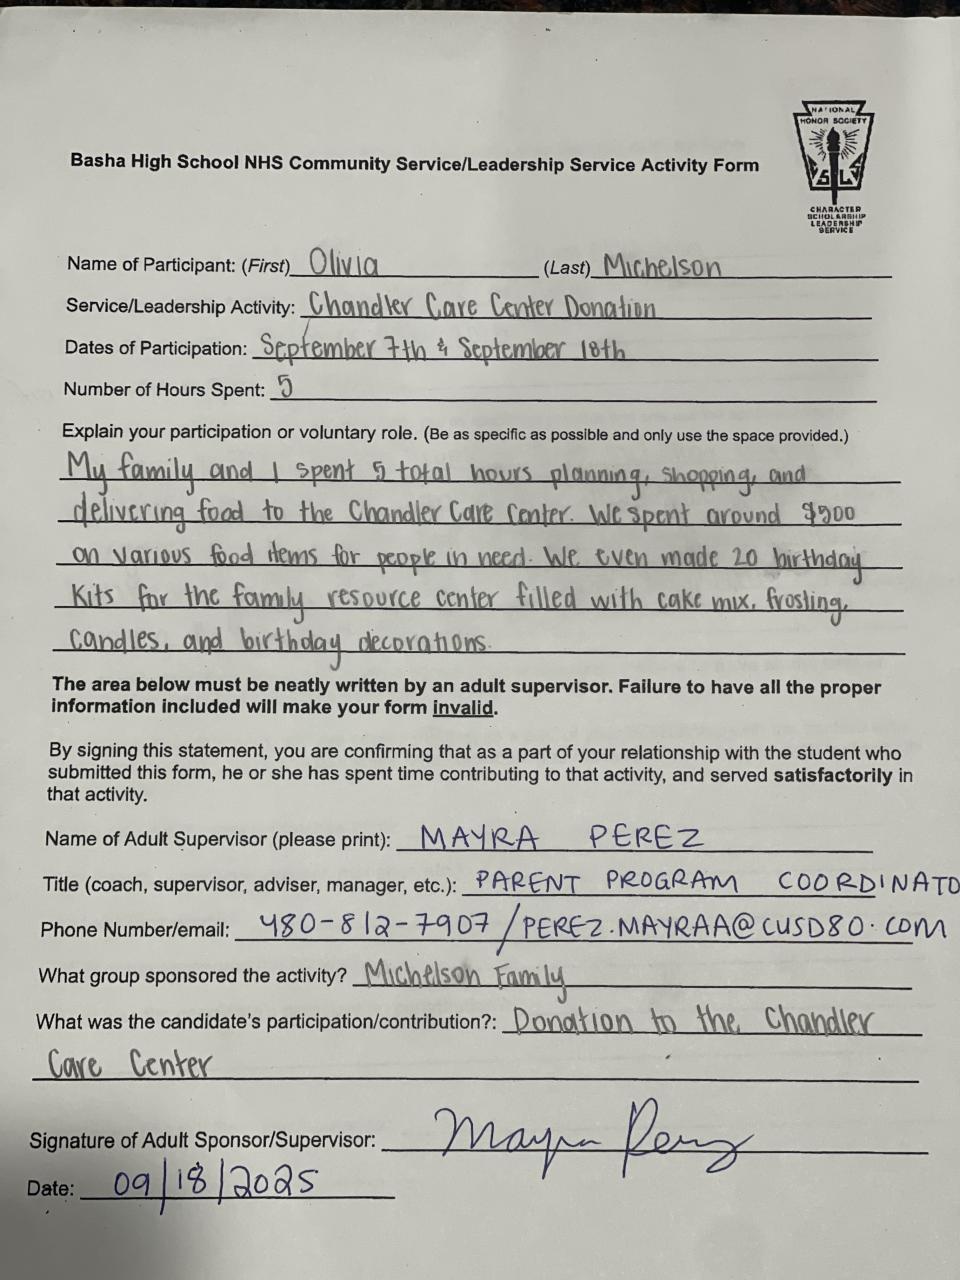 NATIONAL
HONOR SOCIETY
S L S
CHARACTER
SCHOLARSHIP
LEADERSHIP
SERVICE
Basha High School NHS Community Service/Leadership Service Activity Form
Name of Participant: (First) Olivia (Last) Michelson
Service/Leadership Activity: Chandler Care Center Donation
Dates of Participation: September 7th & September 18th
Number of Hours Spent: 5
Explain your participation or voluntary role. (Be as specific as possible and only use the space provided.)
My family and I spent 5 total hours planning, shopping, and
delivering food to the Chandler Care Center. We spent around $500
on various food items for people in need. We even made 20 birthday
Kits for the family resource center filled with cake mix, frosting,
candles, and birthday decorations.
The area below must be neatly written by an adult supervisor. Failure to have all the proper
information included will make your form invalid.
By signing this statement, you are confirming that as a part of your relationship with the student who
submitted this form, he or she has spent time contributing to that activity, and served satisfactorily in
that activity.
Name of Adult Supervisor (please print): MAYRA PEREZ
Title (coach, supervisor, adviser, manager, etc.): PARENT PROGRAM COORDINATO
Phone Number/email: 480-812-7907 / PEREZ.MAYRAA@CUSD80.COM
What group sponsored the activity? Michelson Family
What was the candidate's participation/contribution?: Donation to the Chandler
Care Center
Signature of Adult Sponsor/Supervisor: Mayra Perez
Date: 09/18/2025